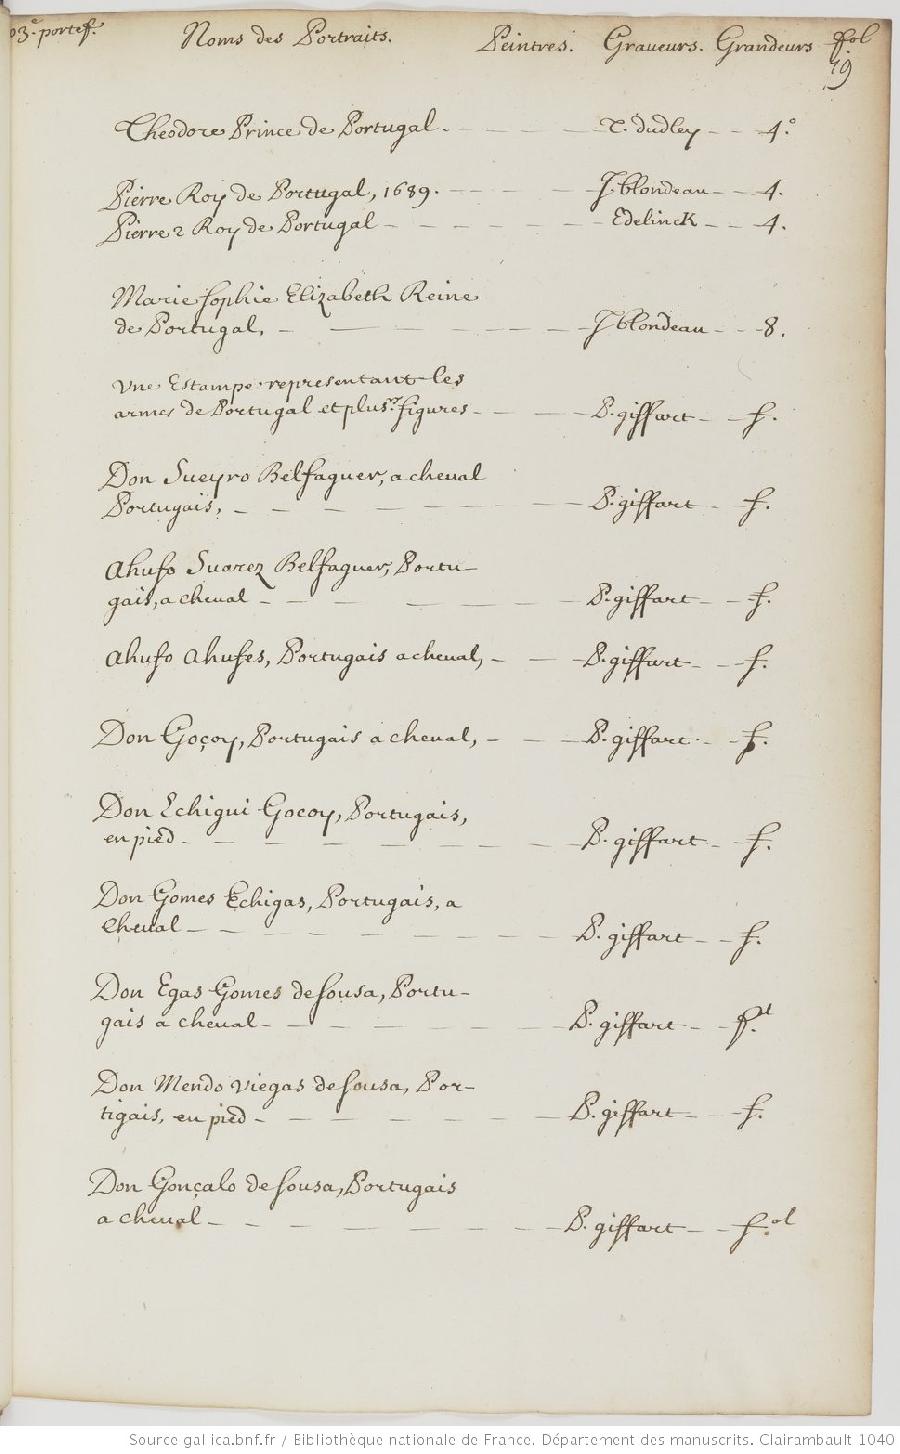 03.e portef. Noms des Portraits. Peintres. Graveurs. Grandeurs fol.
19
Theodore Prince de Portugal. T. dudley 4.o
Pierre Roy de Portugal, 1689. J. blondeau 4.
Pierre 2 Roy de Portugal Edelinck 4.
Marie Sophie Elizabeth Reine
de Portugal, J blondeau 8.
Vne Estampe representant les
armes de Portugal et plus.rs figures P. giffart f.
Don Sueyro Belfaguer, a cheval
Portugais, P. giffart f.
Ahufo Suarez Belfaguer, Portu-
gais, a cheval P. giffart f.
Ahufo Ahufes, Portugais a cheval, P. giffart f.
Don Goçoy, Portugais a cheval, P. giffart f.
Don Echigui Gocoy, Portugais,
en pied P. giffart f.
Don Gomes Echigas, Portugais, a
cheval P. giffart f.
Don Egas Gomes de Sousa, Portu-
gais a cheval P. giffart
Don Mendo Viegas de Sousa, Por-
tigais, en pied P. giffart f.
Don Gonçalo de Sousa, Portugais
a cheval P. giffart f.ol
Source gallica.bnf.fr / Bibliothèque nationale de France. Département des manuscrits. Clairambault 1040